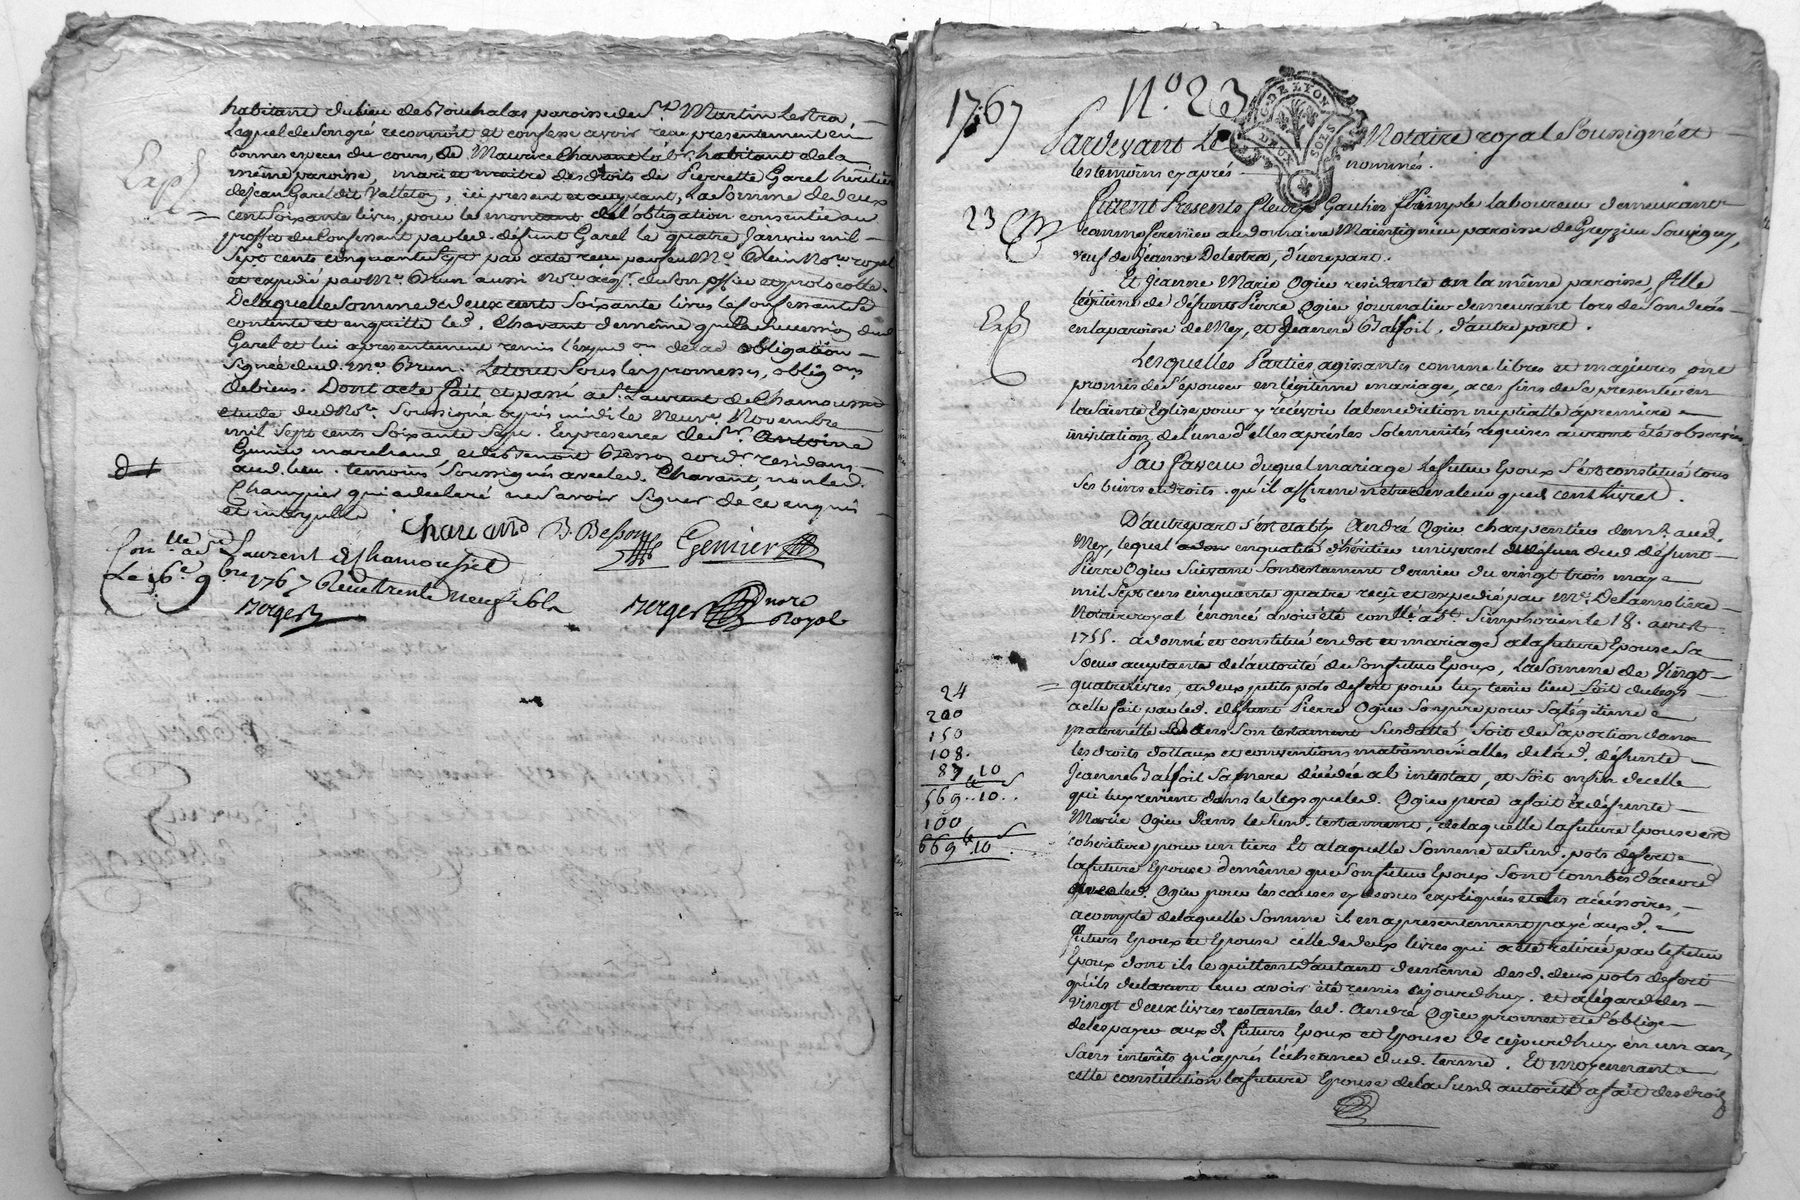 habitant du lieu de paroisse de St Martin Lestra
Lequel de son gré reconnoit et confesse avoir reçu presentement en
bonnes especes du cours, de Maurice Chavant habitant de la
même paroisse, mari et maitre des droits de Pierrette Garel héritière
de Jean Garel dit Valleton, ici present et acceptant, La somme de deux
cent soixante livres, pour le montant de l'obligation consentie au
proffit du Confessant par led. défunt Garel le quatre Janvier mil
sept cents cinquante sept par acte reçu par feu Me nore royal
et expédié par Me Brun aussi nore acqr. de son office et protocolle.
De laquelle somme de deux cents soixante livres le Confessant se
contente et en quitte led. Chavant de même que la succession dud
Garel et lui a presentement remis l'expedon de lad obligation
signée dud. me Brun. Le tout sous les promesses, obligons
de biens. Dont acte fait et passé a St Laurent de Chamousset
etude dud nore. soussigné après midi le neuve. Novembre
mil sept cents soixante sept. En presence de Sr. Antoine
Genier marchand et de Benoit Besson cordr residans
aud. lieu. temoins soussignés avec led. Chavant, non led.
Champier qui a declaré ne savoir signer de ce enquis
et interpellé.
Exp
Chavand B. Besson Genier
Conlle a St Laurent de Chamousset
Le 16e 9bre 1767 Reçu trente neuf sols
Berger
Berger nore Royal
1767 No. 23
G. DE LYON
DEUX SOLS
Pardevant Le Notaire royal Soussigné et
les temoins cy après nommés.
23 CM
Furent Presents Fleury Gaulin laboureur demeurant
comme fermier au domaine Maintigneu paroisse de Grezzieu Souvigny,
veuf de Jeanne Delestra, d'une part.
Et Jeanne Marie Ogier residante en la même paroisse, fille
légitime de défunts Pierre Ogier journalier demeurant lors de son decés
en la paroisse de Mey, et Jeanne Bassoil, d'autre part.
Exp
Lesquelles Parties agissantes comme libres et majeures ont
promis de s'épouser en légitime mariage, a ces fins de se presenter en
la Sainte Eglise pour y récévoir la benediction nuptialle á premiere
invitation de l'une d'elles aprés les solemnités requises auront été observées
En Faveur duquel mariage le futur Epoux s'est constitué tous
ses biens et droits. qu'il affirme n'etre de valeur que de cent livres.
D'autre part s'est etably André Ogier charpentier demt. aud.
Mey, lequel en qualité d'héritier universel dud défunt
Pierre Ogier suivant son testament dernier du vingt trois may
mil sept cens cinquante quatre reçu et expedié par me. Delamotiere
Notaire royal énoncé avoir été conllé a St Simphorien le 18. aoust
1755. a donné et constitué en dot et mariage a la future Epouse Sa
Soeur acceptante de l'autorité de son futur Epoux, la somme de vingt
quatre livres, et deux petits pots de fert pour luy tenir lieu soit du legs
a elle fait par led. défunt Pierre Ogier son père pour sa légitime
paternelle dans son testament susdatté soit de sa portion dans
les droits dottaux et conventions matrimonialles de lad. défunte
Jeanne Bassoil sa mere décédée ab intestat, et soit enfin de celle
qui luy revient dans le legs que led. Ogier pere a fait a défunte
Marie Ogier dans le sud. testament, de laquelle la future Epouse est
cohéritiere pour un tiers Et a laquelle somme et sud. pots de fert
la future Epouse de même que son futur Epoux sont tombés d'accord
avec led. Ogier pour les causes cy dessus expliquées et les accéssoires,
a compte de laquelle somme il en a presentement payé auxd.
futurs Epoux et Epouse celle de deux livres qui a été retirée par le futur
Epoux dont ils le quittent d'autant de même desd. deux pots de fert
qu'ils declarent leur avoir été remis cejourd'huy. et a l'égard des
vingt deux livres restantes led. André Ogier promet et s'oblige
de les payer auxd. futurs Epoux et Epouse de cejourd'huy en un an,
sans intérêts qu'aprés l'échéance dud. terme. Et moyennant
cette constitution la future Epouse de la sud. autorité a fait des droits
24
200
150
108.
87 10
569..10..
100
669 10.